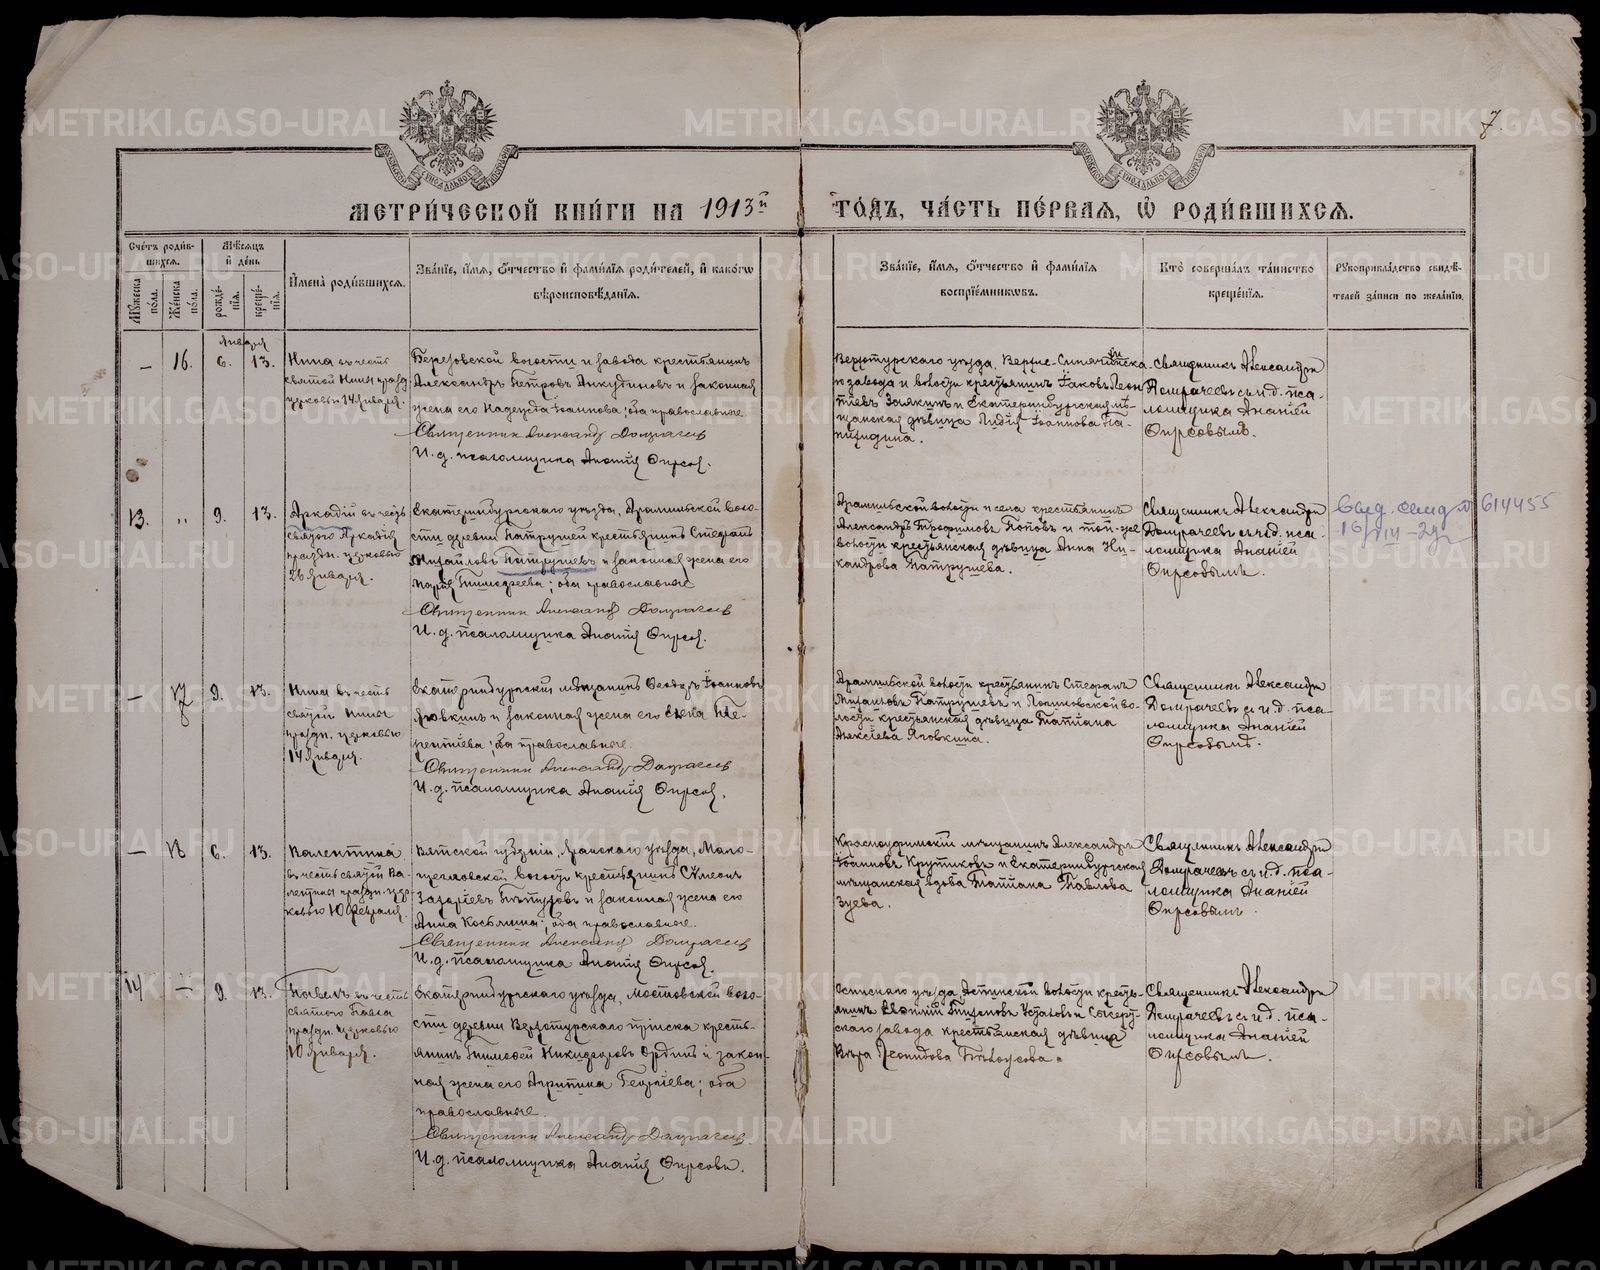 7.
МЕТРИ́ЧЕСКОЙ КНИ́ГИ НА 1913й ГО́ДЪ, ЧА́СТЬ ПЕ́РВАЯ, Ѡ РОДИ́ВШИХСЯ.
Сче́тъ роди́в-
шихся.
Му́жеска по́ла.
Же́нска по́ла.
Мѣ́сяцъ
и де́нь.
рожде́нія.
креще́нія.
Имена̀ роди́вшихся.
Зва́ніе, и́мя, о́тчество и фами́лія роди́телей, и како́гѡ
вѣроисповѣ́данія.
Зва́ніе, и́мя, о́тчество и фами́лія
воспріе́мникѡвъ.
Кто̀ соверша́лъ та́инство
креще́нія.
Рукоприкла́дство свидѣ́-
телей за́писи по жела́нію.
Января
— 16. 6. 13.
Нина въ честь
святой Нины празд.
церковью 14 Января.
Березовской волости и завода крестьянинъ
Александръ Петровъ Анкудиновъ и законная
жена его Надежда Іоаннова; оба православные
Священникъ Александръ Домрачевъ
И. д. псаломщика Ананій Фирсов.
Верхотурскаго уѣзда, Верхне-Синячихинска-
го завода и волости крестьянинъ Іаковъ Леон-
тіевъ Заякинъ и Екатеринбургская мѣ-
щанская дѣвица Лидія Іоаннова
Священникъ Александръ
Домрачевъ съ и. д. пса-
ломщика Ананіей
Фирсовымъ.
13. „ 9. 13.
Аркадій въ честь
святого Аркадія
праздн. церковью
26 Января.
Екатеринбургскаго уѣзда, Арамильской воло-
сти деревни Патрушей крестьянинъ Стефанъ
Михайловъ Патрушевъ и законная жена его
Марія Тимофеева; оба православные
Священникъ Александръ Домрачевъ
И. д. псаломщика Ананій Фирсов.
Арамильской волости и села крестьянинъ
Александръ Трофимовъ Поповъ и той-же
волости крестьянская дѣвица Анна Ни-
кандрова Патрушева.
Священникъ Александръ
Домрачевъ съ и. д. пса-
ломщика Ананіей
Фирсовымъ.
614455
— 17 9. 13.
Нина въ честь
святой Нины
праздн. церковью
14 Января.
Екатеринбургскій мѣщанинъ Феодоръ Іоанновъ
Яговкинъ и законная жена его Елена Те-
рентіева; оба православные.
Священникъ Александръ Домрачевъ
И. д. псаломщика Ананій Фирсов.
Арамильской волости крестьянинъ Стефанъ
Михайловъ Патрушевъ и во-
лости крестьянская дѣвица Татіана
Алексіева Яговкина.
Священникъ Александръ
Домрачевъ съ и. д. пса-
ломщика Ананіей
Фирсовымъ.
— 18 6. 13.
Валентина
въ честь святой Ва-
лентины праздн. цер-
ковью 10 Февраля.
Вятской губерніи, Яранскаго уѣзда,
волости крестьянинъ Симеонъ
Захаріевъ и законная жена его
Анна Косьмина; оба православные.
Священникъ Александръ Домрачевъ
И. д. псаломщика Ананій Фирсов.
Красноуфимскій мѣщанинъ Александръ
Іоанновъ Крутиковъ и Екатеринбургская
мѣщанская вдова Татіана Павлова
Зуева.
Священникъ Александръ
Домрачевъ съ и. д. пса-
ломщика Ананіей
Фирсовымъ.
14 — 9. 13.
Павелъ въ честь
святого Павла
праздн. церковью
10 Января.
Екатеринбургскаго уѣзда, Мостовской воло-
сти деревни Верхотурскаго пріиска кресть-
янинъ Тимофей Никифоровъ и закон-
ная жена его Агрипина Георгіева; оба
православные.
Священникъ Александръ Домрачевъ.
И. д. псаломщика Ананій Фирсовъ.
Осинскаго уѣзда, волости кресть-
янинъ и Сысерт-
скаго завода крестьянская дѣвица
Вѣра Леонидова Бѣлоусова.
Священникъ Александръ
Домрачевъ съ и. д. пса-
ломщика Ананіей
Фирсовымъ.
METRIKI.GASO-URAL.RU